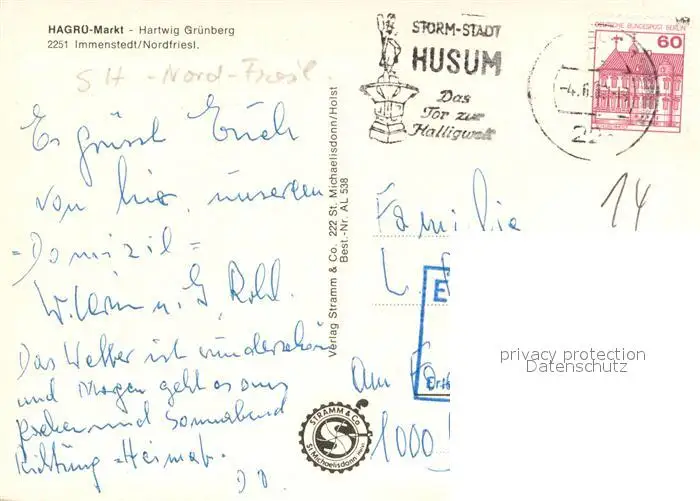 HAGRÜ-Markt - Hartwig Grünberg
2251 Immenstedt/Nordfriesl.
SH - Nord-Friesl.
Es grüsst Euch
von hier, unserem
=Domizil=
u. G.
Das Wetter ist wunderschön
und Morgen geht es zum
und Sonnabend
Richtung =Heimat.
Verlag Stramm & Co. 222 St. Michaelisdonn/Holst
Best.-Nr. AL 538
STRAMM & Co.
St. Michaelisdonn
STORM-STADT
HUSUM
Das
Tor zur
Halligwelt
-4.6.
22
DEUTSCHE BUNDESPOST BERLIN
60
14
Familie
L.
E
Am
Orts
1000
privacy protection
Datenschutz